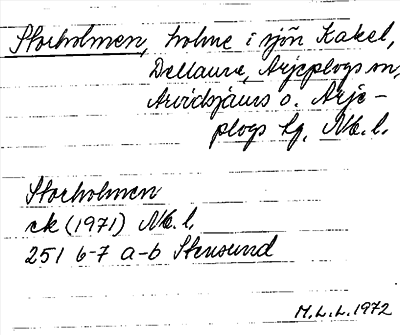 Storholmen, holme i sjön Kakel,
Dellaure, Arjeplogs sn,
Arvidsjaurs o. Arje-
plogs tg, Nb. l.
Storholmen
ek (1971) Nb. l.
251 6-7 a-b Stensund
M.L.L. 1972